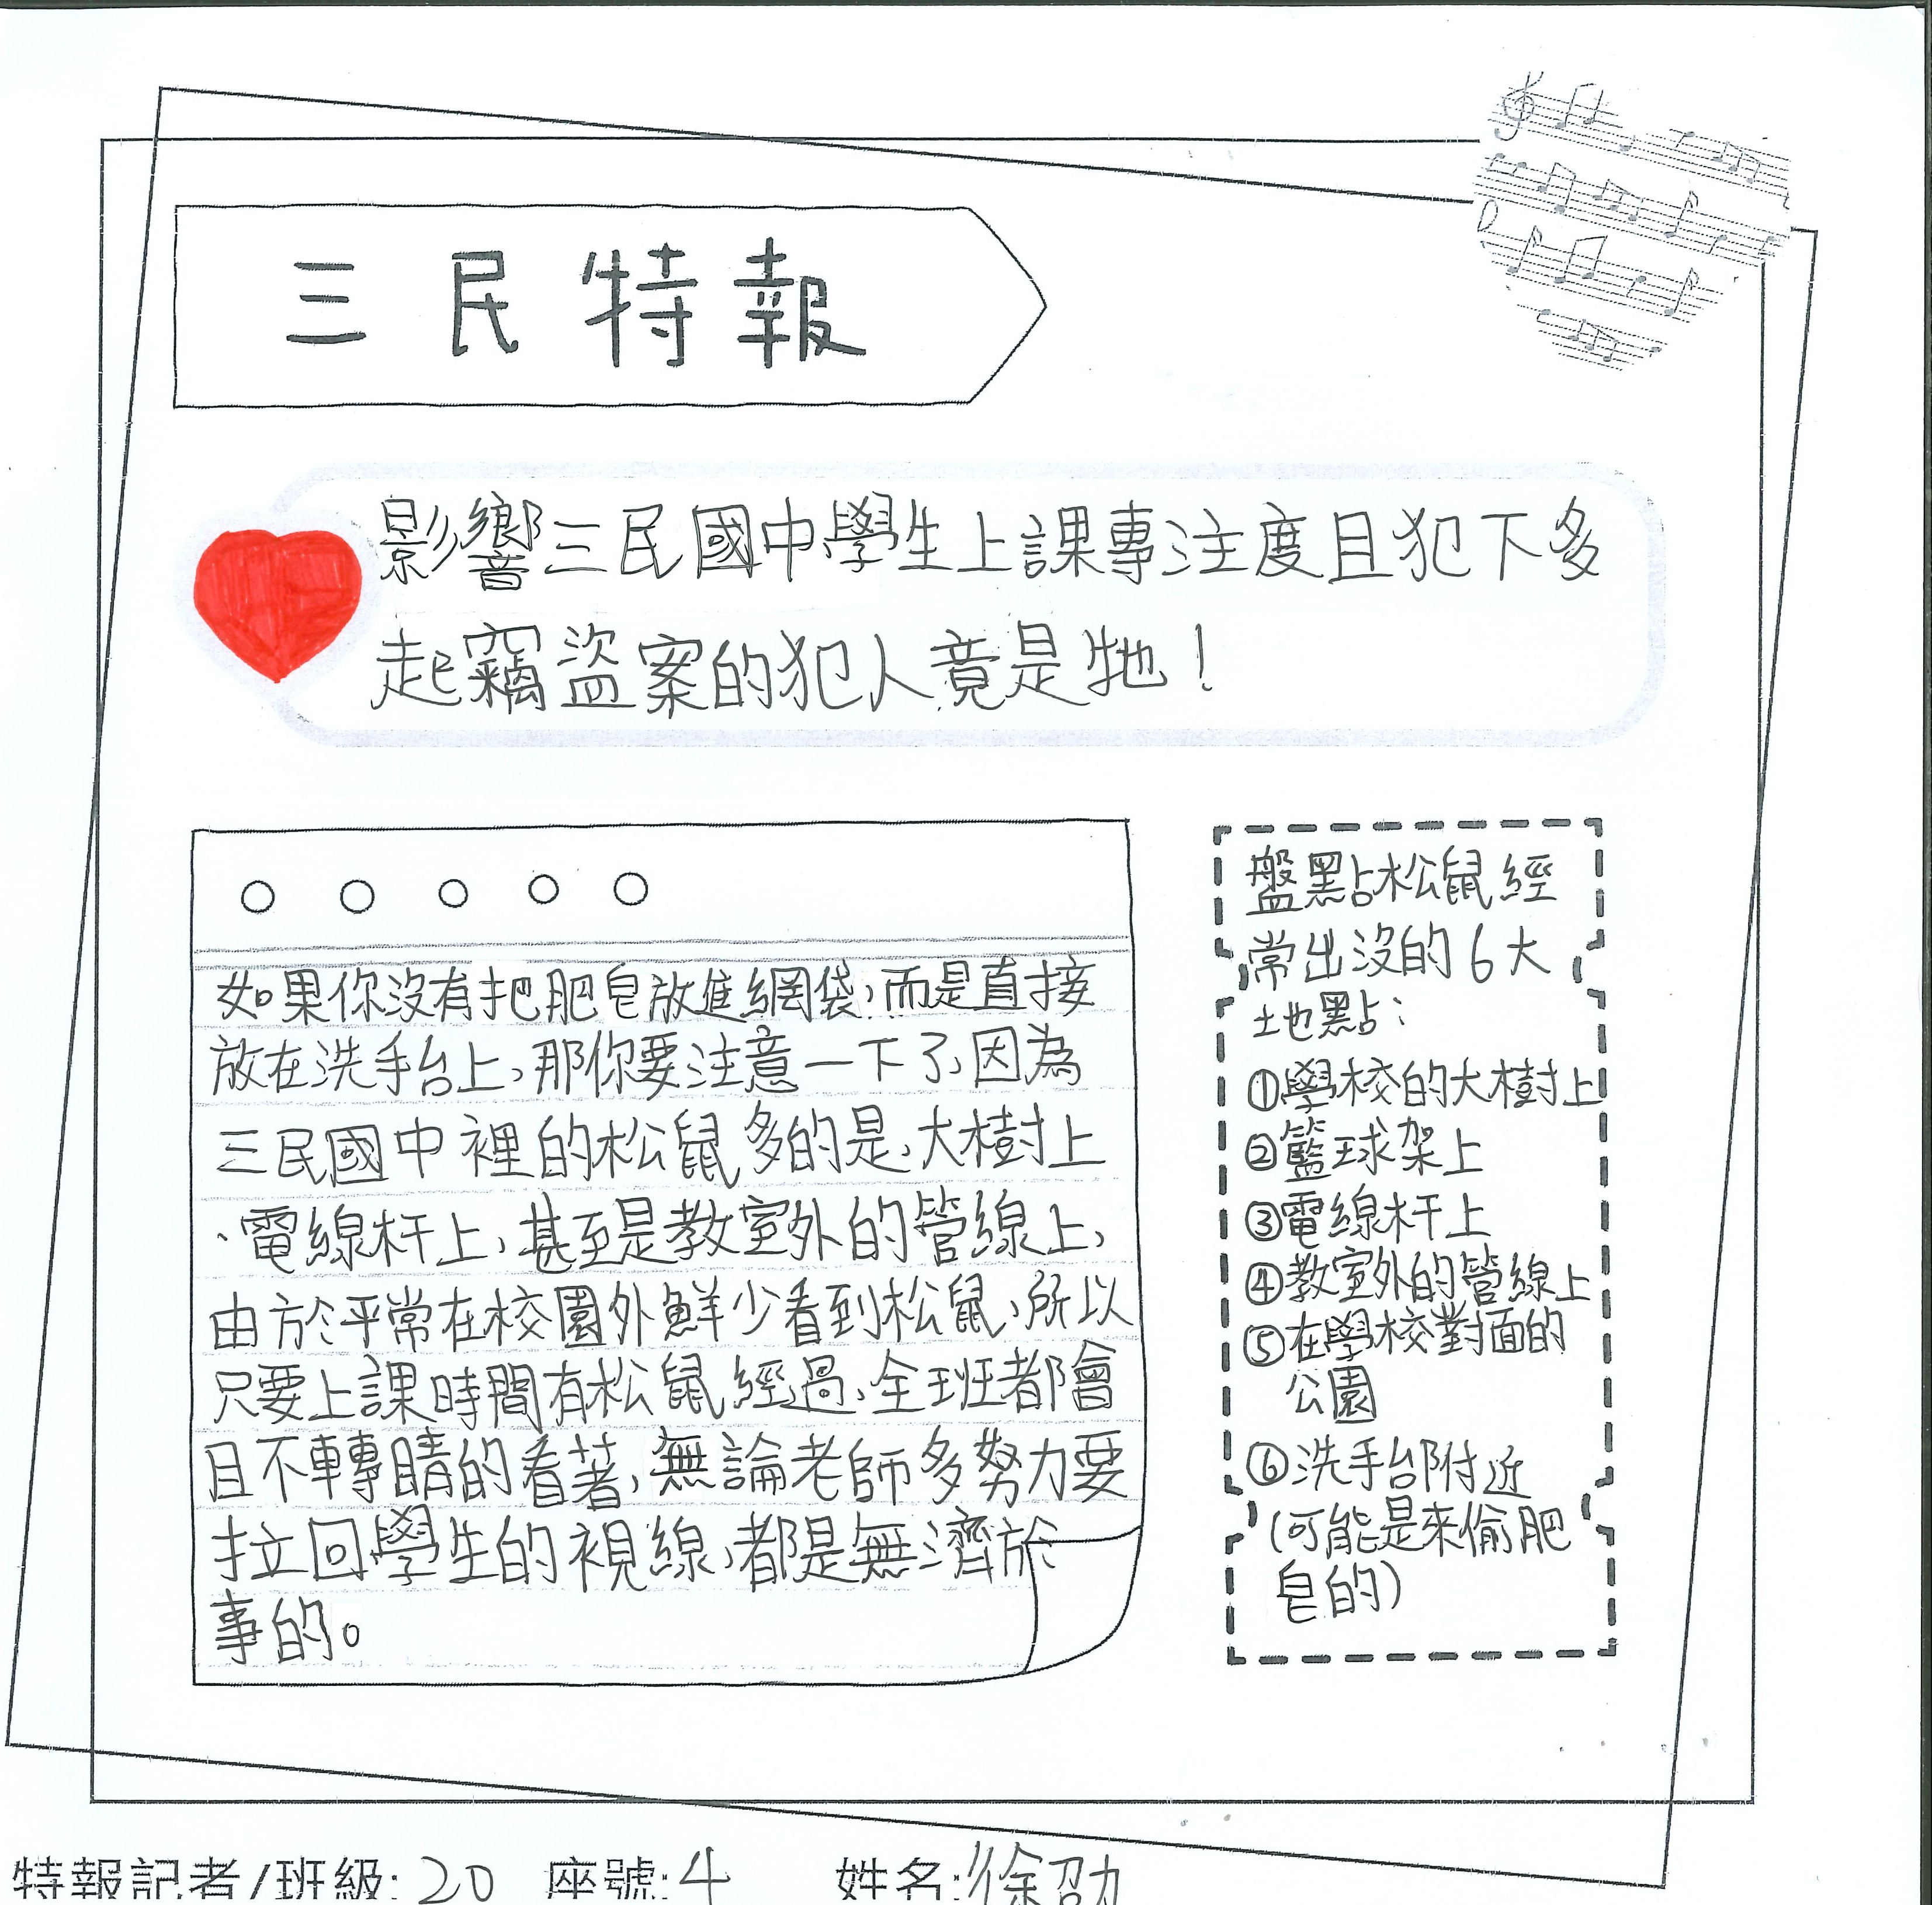 三民特報
影響三民國中學生上課專注度且犯下多
起竊盜案的犯人竟是牠！
如果你沒有把肥皂放進網袋，而是直接
放在洗手台上，那你要注意一下了，因為
三民國中裡的松鼠多的是，大樹上
、電線杆上，甚至是教室外的管線上，
由於平常在校園外鮮少看到松鼠，所以
只要上課時間有松鼠經過，全班都會
目不轉睛的看著，無論老師多努力要
拉回學生的視線，都是無濟於
事的。
盤點松鼠經
常出沒的6大
地點：
①學校的大樹上
②籃球架上
③電線杆上
④教室外的管線上
⑤在學校對面的
公園
⑥洗手台附近
(可能是來偷肥
皂的)
特報記者/班級:20 座號:4 姓名:徐劭